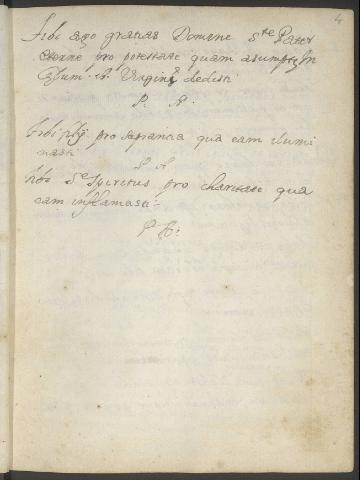 4
Tibi ago gratias Domine Ste Pater
eterne pro potestate quam asumpte In
Cælum B. Virgini dedisti
P. A.
tibi fily pro sapientia qua eam ilumi
nasti
P A
tibi Ste Spiritus pro charitate qua
eam inflamasti
P A: